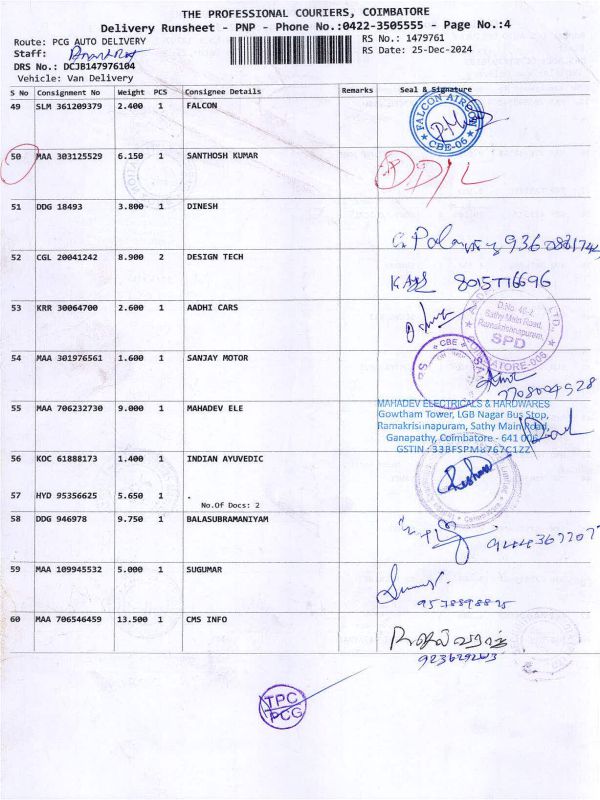 THE PROFESSIONAL COURIERS, COIMBATORE
Delivery Runsheet - PNP - Phone No.:0422-3505555 - Page No.:4
Route: PCG AUTO DELIVERY
Staff:
DRS No.: DCJB147976104
Vehicle: Van Delivery
RS No.: 1479761
RS Date: 25-Dec-2024
S No Consignment No Weight PCS Consignee Details Remarks Seal & Signature
49 SLM 361209379 2.400 1 FALCON
FALCON
CBE-06
50 MAA 303125529 6.150 1 SANTHOSH KUMAR
D/L
51 DDG 18493 3.800 1 DINESH
52 CGL 20041242 8.900 2 DESIGN TECH
53 KRR 30064700 2.600 1 AADHI CARS
D.No. 46-2,
Sathy Main Road,
Ramakrishnapuram,
SPD
54 MAA 301976561 1.600 1 SANJAY MOTOR
CBE
55 MAA 706232730 9.000 1 MAHADEV ELE
MAHADEV ELECTRICALS & HARDWARES
Gowtham Tower, LGB Nagar Bus Stop,
Ramakrishnapuram, Sathy Main Road,
Ganapathy, Coimbatore - 641 006
GSTIN : 33BFSPM8767C1ZZ
56 KOC 61888173 1.400 1 INDIAN AYUVEDIC
57 HYD 95356625 5.650 1 .
No.Of Docs: 2
58 DDG 946978 9.750 1 BALASUBRAMANIYAM
59 MAA 109945532 5.000 1 SUGUMAR
60 MAA 706546459 13.500 1 CMS INFO
TPC
PCG